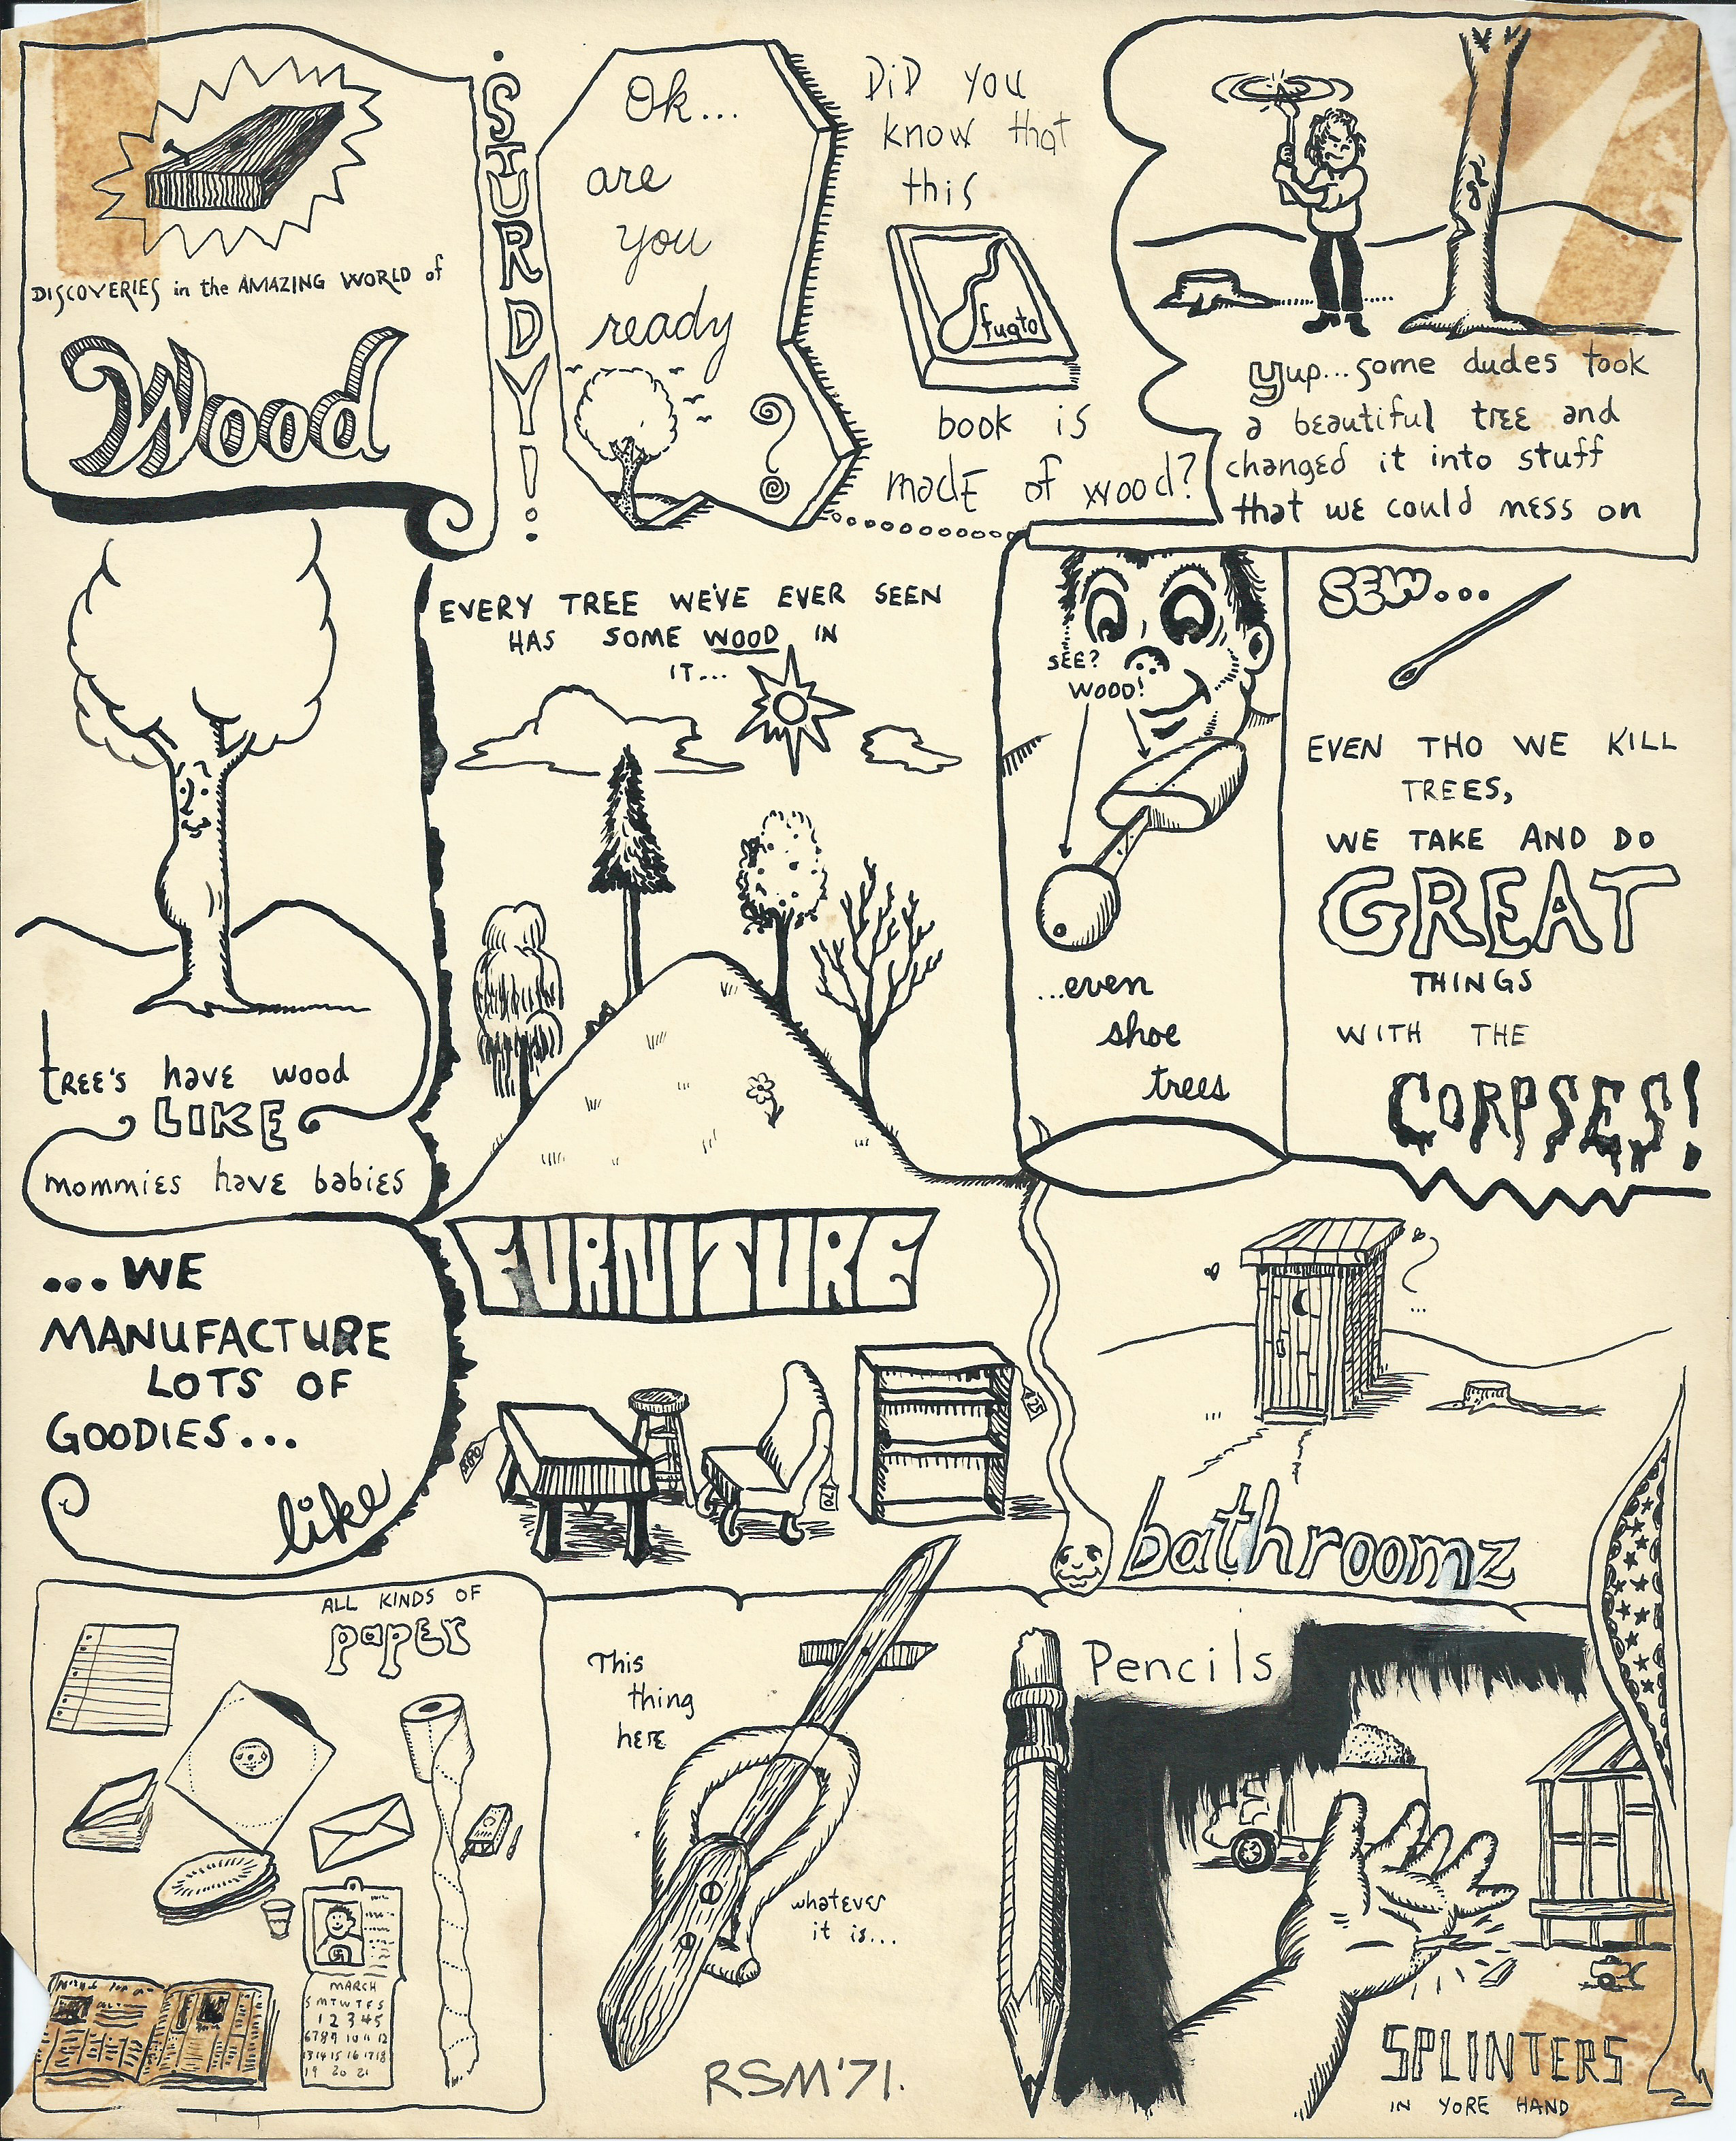 DISCOVERIES in the AMAZING WORLD of
Wood
STURDY!
Ok...
are
you
ready
?
DiD you
know that
this
book is
madE of wood?
yup... some dudes took
a beautiful tree and
changed it into stuff
that we could mess on
tREE'S have wood
LIKE
mommies have babies
EVERY TREE WE'VE EVER SEEN
HAS SOME WOOD IN
IT...
SEE?
WOOD!
...even
shoe
trees
SEW...
EVEN THO WE KILL
TREES,
WE TAKE AND DO
GREAT
THINGS
WITH THE
CORPSES!
...WE
MANUFACTURE
LOTS OF
GOODIES...
like
FURNITURE
70
25
bathroomz
ALL KINDS OF
paper
MARCH
S M T W T F S
1 2 3 4 5
6 7 8 9 10 11 12
13 14 15 16 17 18
19 20 21
This
thing
here
whatever
it is...
RSM'71.
Pencils
SPLINTERS
IN YORE HAND